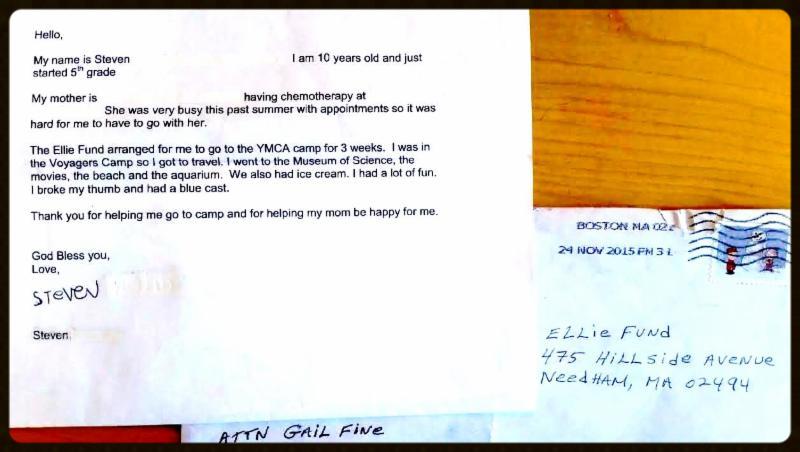 Hello,
My name is Steven I am 10 years old and just
started 5th grade
My mother is having chemotherapy at
She was very busy this past summer with appointments so it was
hard for me to have to go with her.
The Ellie Fund arranged for me to go to the YMCA camp for 3 weeks. I was in
the Voyagers Camp so I got to travel. I went to the Museum of Science, the
movies, the beach and the aquarium. We also had ice cream. I had a lot of fun.
I broke my thumb and had a blue cast.
Thank you for helping me go to camp and for helping my mom be happy for me.
God Bless you,
Love,
STEVEN
Steven
BOSTON MA
24 NOV 2015 PM
ELLie FUND
475 HILLSide AVENUE
NeedHAM, MA 02494
ATTN GAIL FINE